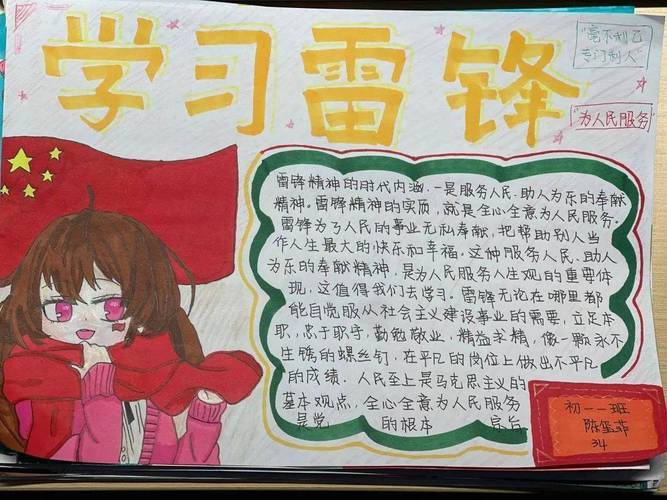 学习雷锋
"毫不利己
专门利人"
"为人民服务"
雷锋精神的时代内涵.一是服务人民.助人为乐的奉献
精神。雷锋精神的实质，就是全心全意为人民服务。
雷锋为了人民的事业无私奉献，把帮助别人当
作人生最大的快乐和幸福。这种服务人民、助人
为乐的奉献精神，是为人民服务人生观的重要体
现，这值得我们去学习。雷锋无论在哪里都
能自觉服从社会主义建设事业的需要，立足本
职，忠于职守，勤勉敬业，精益求精，像一颗永不
生锈的螺丝钉，在平凡的岗位上做出不平凡
的成绩．人民至上是马克思主义的
基本观点，全心全意为人民服务
是党 的根本 宗旨
初一一班
陈
34